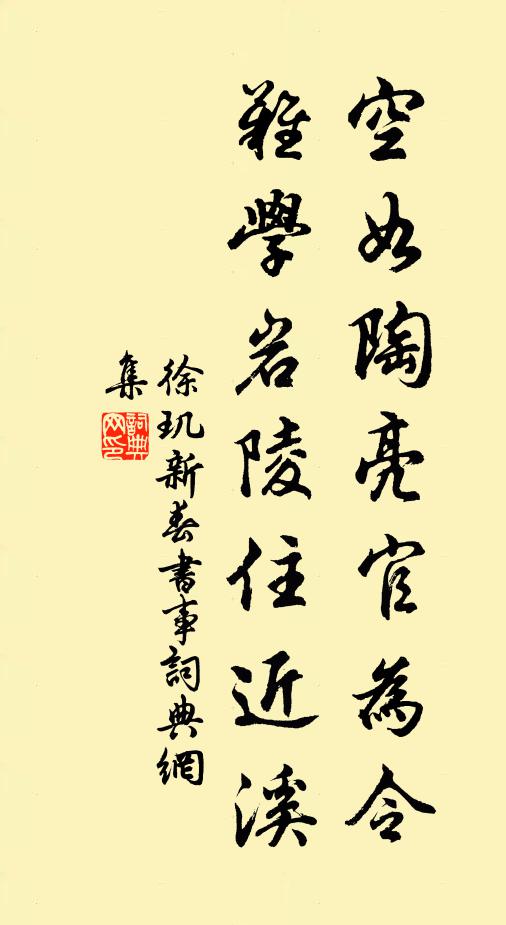 空如陶亮官為令
難學岩陵住近溪
徐玑新春書事詞典網
集
詞典
网印